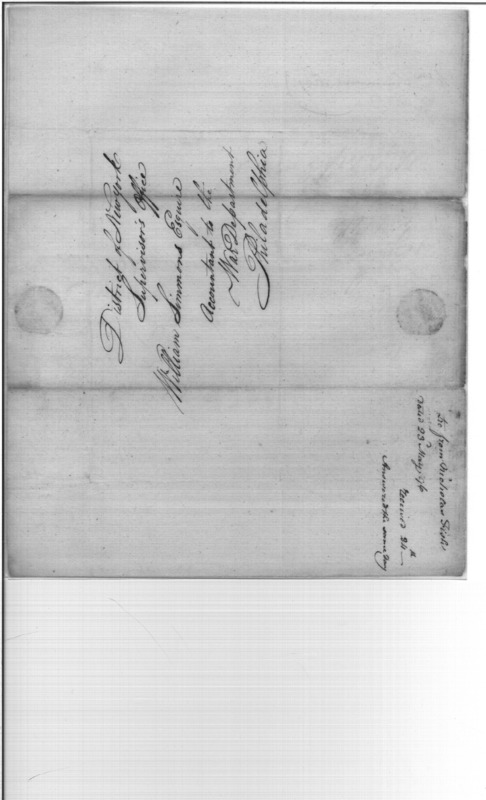 District of New York
Supervisor's Office
William Simmons Esquire
Accountant to the
War Department
Philadelphia
from Nicholas Fish
23 May
24th
Answered the same day